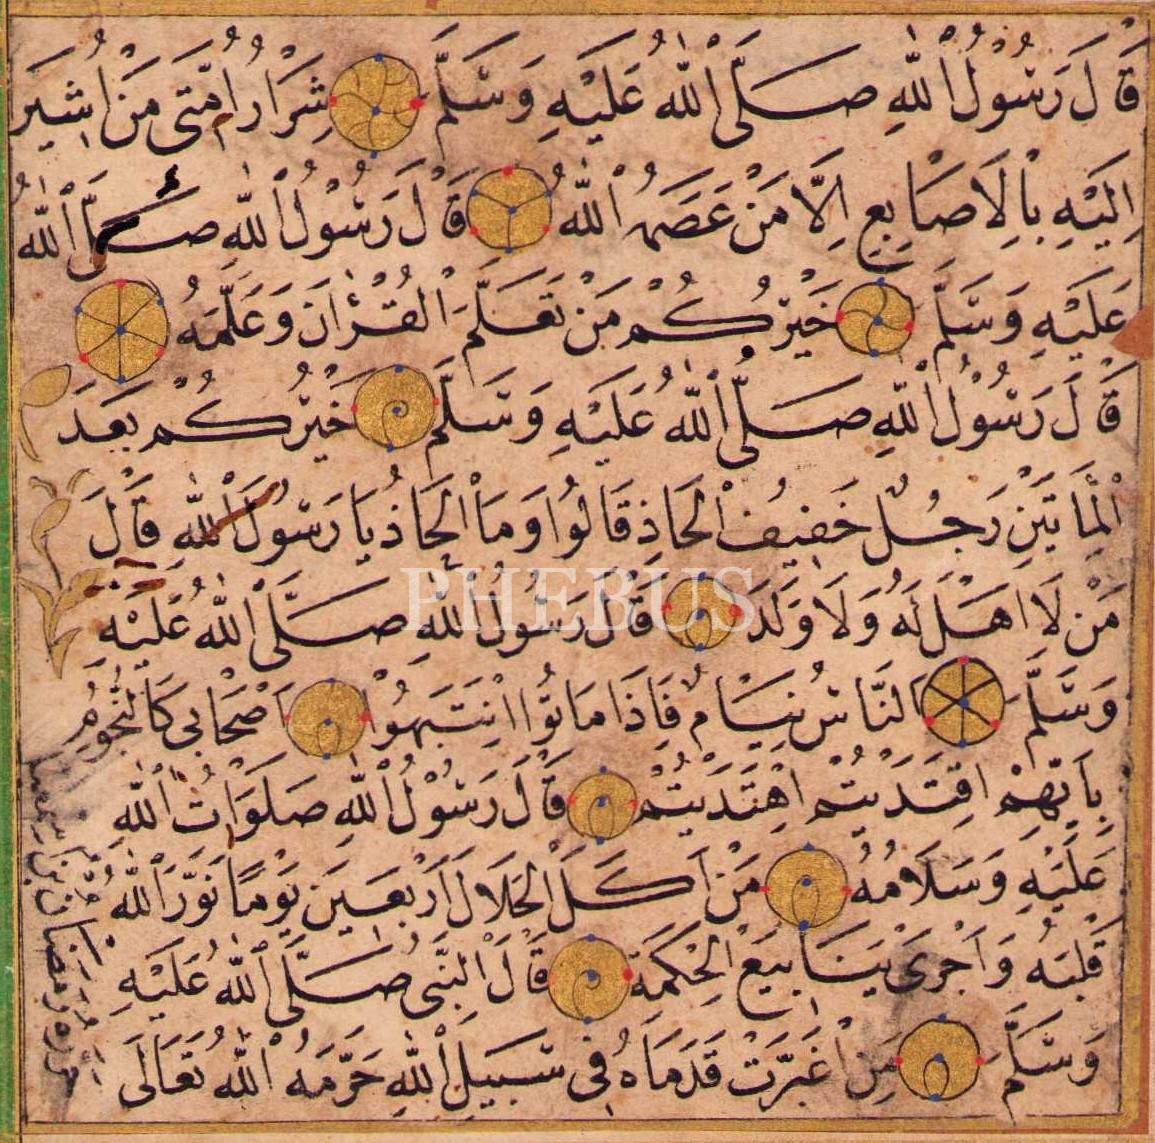 قَالَ رَسُولُ اللّٰهِ صَلَّى اللّٰهُ عَلَيْهِ وَسَلَّمَ شِرَارُ اُمَّتِى مَنْ اُشِيرَ
اِلَيْهِ بِالْاَصَابِعِ اِلَّا مَنْ عَصَمَهُ اللّٰهُ قَالَ رَسُولُ اللّٰهِ صَلَّى اللّٰهُ
عَلَيْهِ وَسَلَّمَ خَيْرُكُمْ مَنْ تَعَلَّمَ الْقُرْاٰنَ وَعَلَّمَهُ
قَالَ رَسُولُ اللّٰهِ صَلَّى اللّٰهُ عَلَيْهِ وَسَلَّمَ خَيْرُكُمْ بَعْدَ
الْمِأَتَيْنِ رَجُلٌ خَفِيفُ الْحَاذِ قَالُوا وَمَا الْحَاذُ يَا رَسُولَ اللّٰهِ قَالَ
مَنْ لَا اَهْلَ لَهُ وَلَا وَلَدَ قَالَ رَسُولُ اللّٰهِ صَلَّى اللّٰهُ عَلَيْهِ
PHEBUS
وَسَلَّمَ النَّاسُ نِيَامٌ فَاِذَا مَاتُوا انْتَبَهُوا اَصْحَابِى كَالنُّجُومِ
بِاَيِّهِمْ اقْتَدَيْتُمْ اهْتَدَيْتُمْ قَالَ رَسُولُ اللّٰهِ صَلَوَاتُ اللّٰهِ
عَلَيْهِ وَسَلَامُهُ مَنْ اَكَلَ الْحَلَالَ اَرْبَعِينَ يَوْمًا نَوَّرَ اللّٰهُ
قَلْبَهُ وَاَجْرٰى يَنَابِيعَ الْحِكْمَةِ قَالَ النَّبِىُّ صَلَّى اللّٰهُ عَلَيْهِ
وَسَلَّمَ مَنِ اغْبَرَّتْ قَدَمَاهُ فِى سَبِيلِ اللّٰهِ حَرَّمَهُ اللّٰهُ تَعَالَى